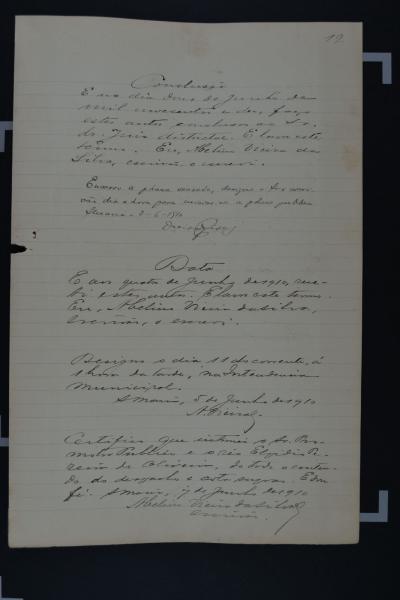 12
Conclusão
E no dia dous de Junho de
mil novecentos e dez, faço
estes autos conclusos ao Sr.
dr. Juiz districtal. E lavro este
termo. Eu, Abelino Vieira da
Silva, escrivão, o escrevi.
2-6-910
Data
E aos quatro de Junho de 1910, rece-
bi estes autos. E lavro este termo.
Eu, Abelino Vieira da Silva,
escrivão, o escrevi.
Designo o dia 11 do corrente, á
1 hora da tarde, na Intendencia
Municipal.
S. Maria, 5 de Junho de 1910
A. Vieira
Certifico que intimei o Sr. Pro-
motor Publico e o réo Elpidio
de Oliveira, de todo o conteú-
do do despacho e cota supras. E dou
fé. S. Maria, 7 de Junho de 1910
Abelino Vieira da Silva
escrivão.